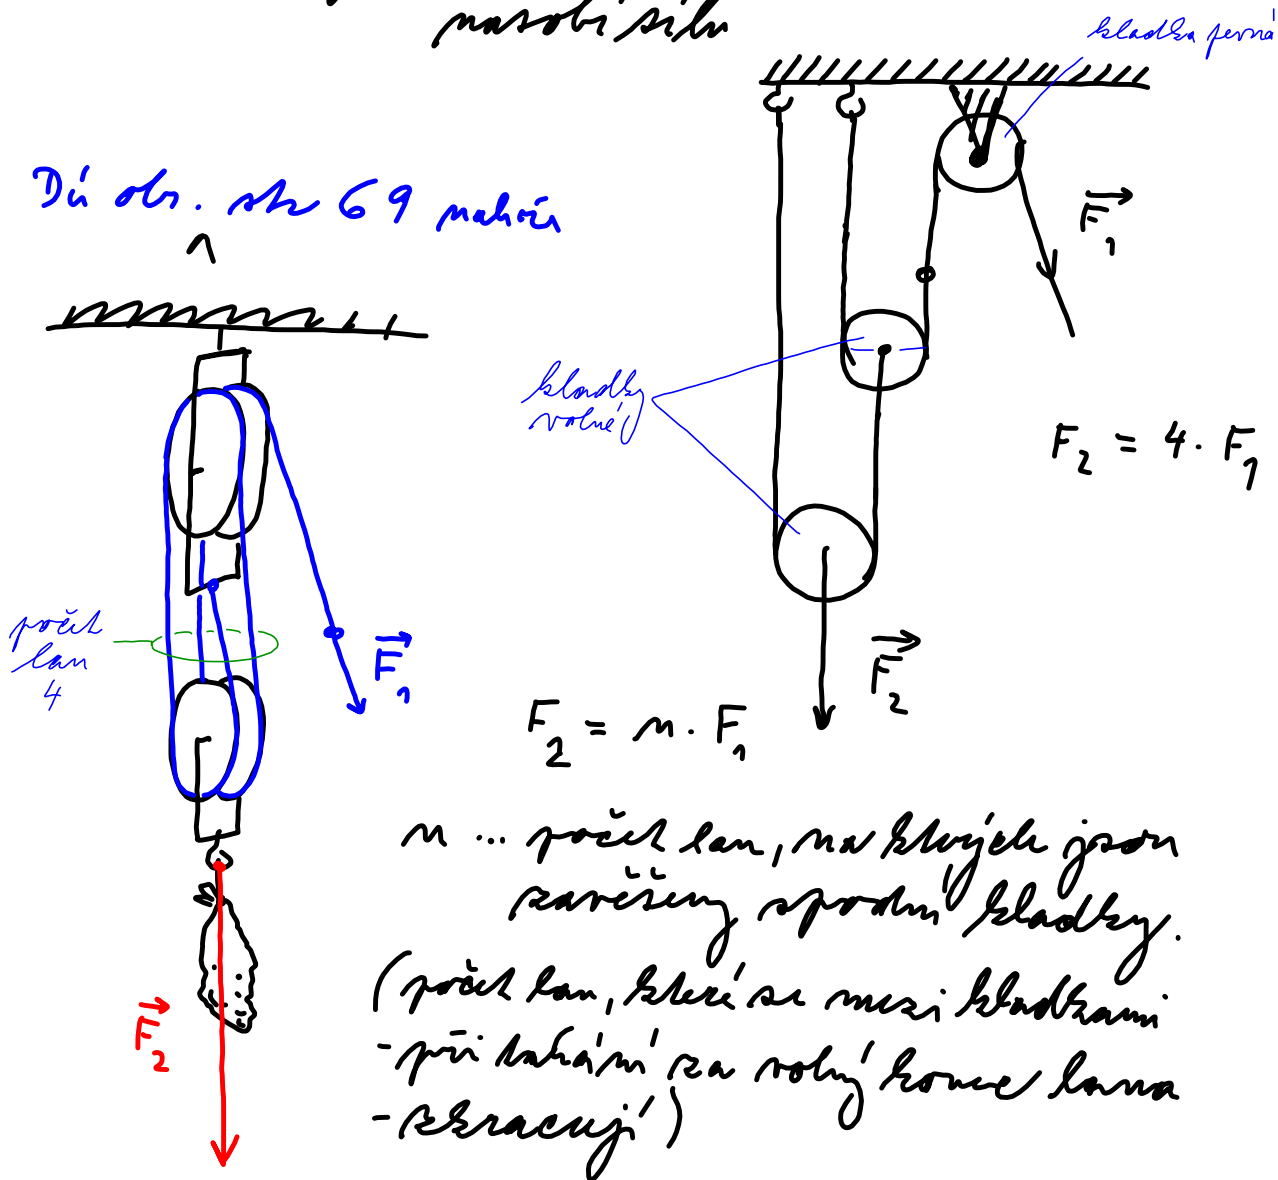 násobí sílu
kladka pevná
Dú obr. str 69 nahoře
F₁
kladky
volné
F₂ = 4 · F₁
počet
lan
4
F₁
F₂
F₂ = n · F₁
n ... počet lan, na kterých jsou
zavěšeny spodní kladky.
(počet lan, které se mezi kladkami
F₂
- při tahání za volný konec lana
- zkracují)